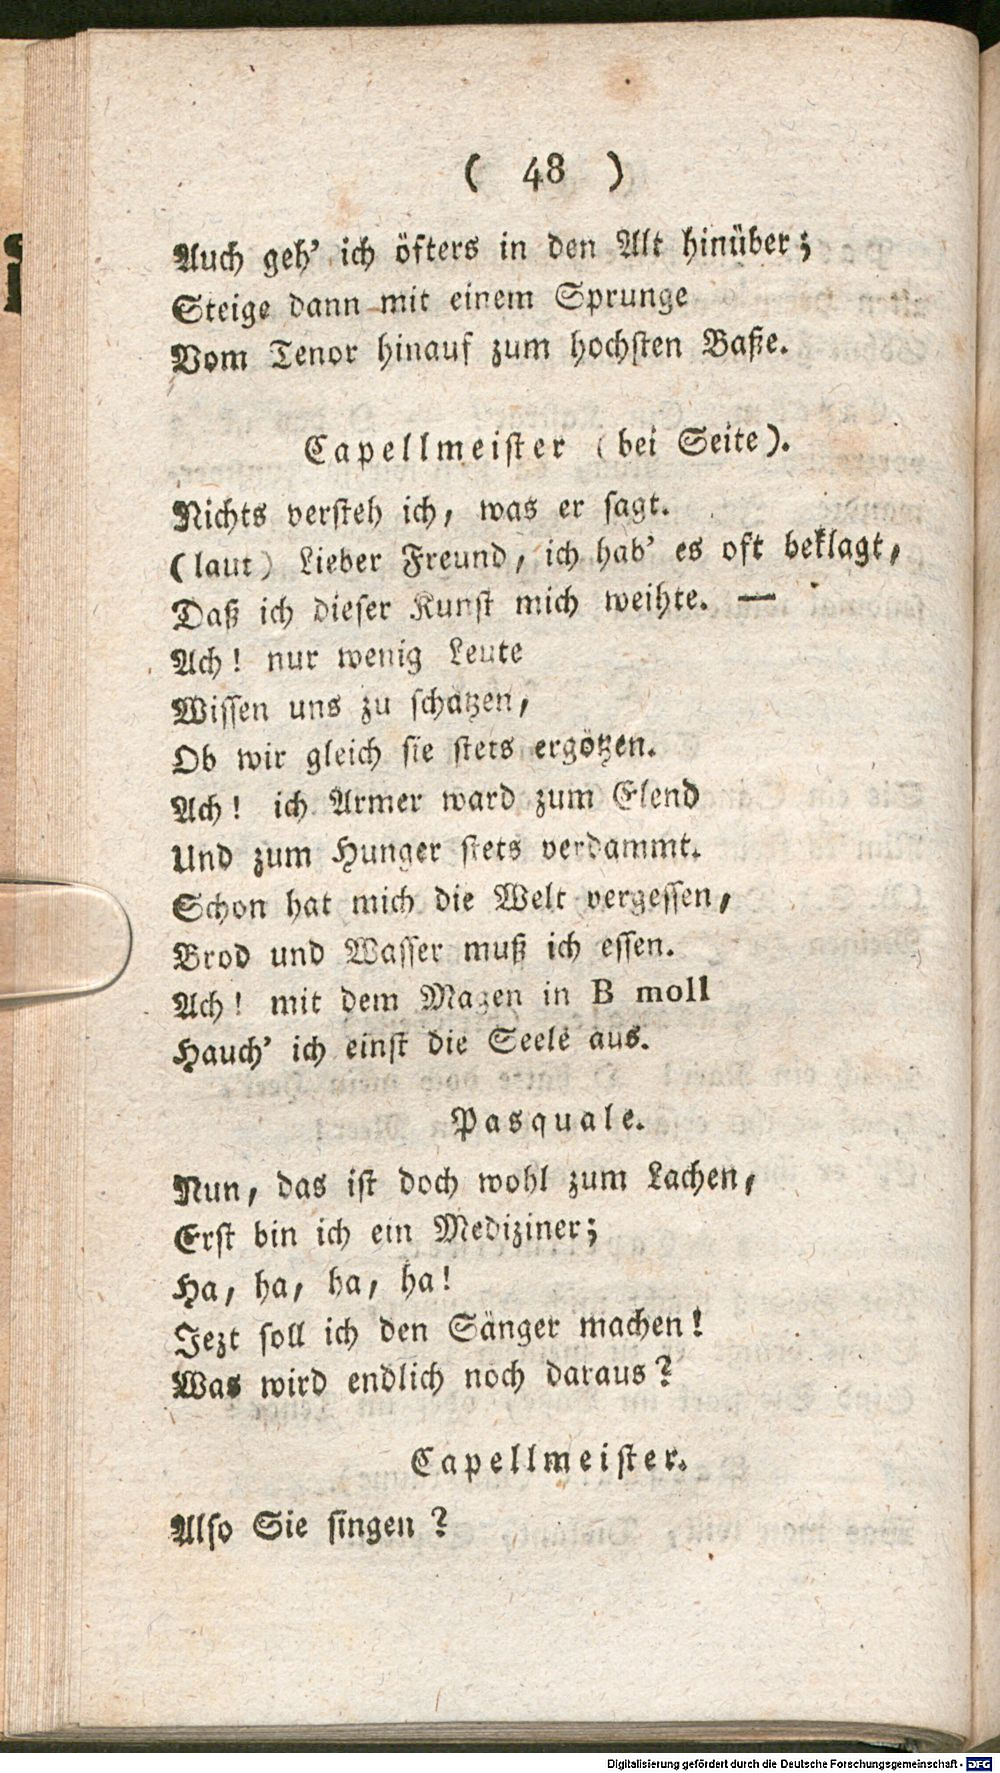 ( 48 )
Auch geh' ich öfters in den Alt hinüber;
Steige dann mit einem Sprunge
Vom Tenor hinauf zum hochsten Baße.
Capellmeister (bei Seite).
Nichts versteh ich, was er sagt.
(laut) Lieber Freund, ich hab' es oft beklagt,
Daß ich dieser Kunst mich weihte. —
Ach! nur wenig Leute
Wissen uns zu schätzen,
Ob wir gleich sie stets ergötzen.
Ach! ich Armer ward zum Elend
Und zum Hunger stets verdammt.
Schon hat mich die Welt vergessen,
Brod und Wasser muß ich essen.
Ach! mit dem Magen in B moll
Hauch' ich einst die Seele aus.
Pasquale.
Nun, das ist doch wohl zum Lachen,
Erst bin ich ein Mediziner;
Ha, ha, ha, ha!
Jezt soll ich den Sänger machen!
Was wird endlich noch daraus?
Capellmeister.
Also Sie singen?
Digitalisierung gefördert durch die Deutsche Forschungsgemeinschaft - DFG